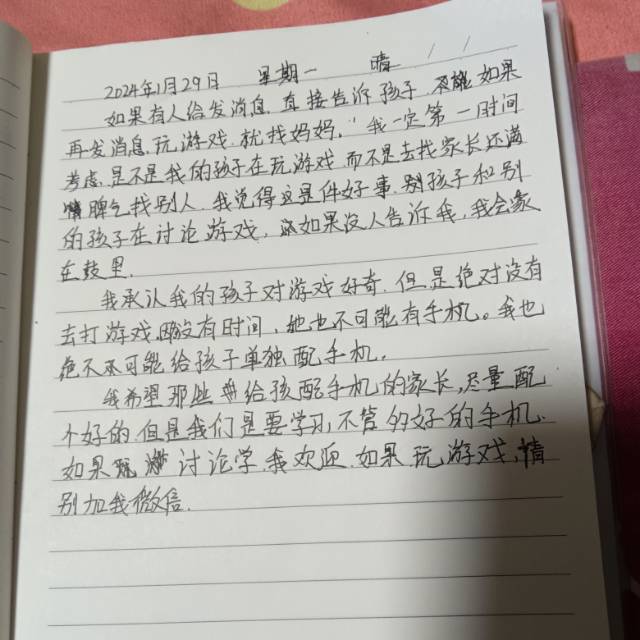 2024年1月29日 星期一 晴
如果有人给发消息,直接告诉孩子,如果
再发消息,玩游戏,就找妈妈,我一定第一时间
考虑,是不是我的孩子在玩游戏,而不是去找家长还满
脾气找别人,我觉得这是件好事,别孩子和别
的孩子在讨论游戏,如果没人告诉我,我会蒙
在鼓里.
我承认我的孩子对游戏好奇.但是绝对没有
去打游戏,因没有时间,她也不可能有手机。我也
绝不可能给孩子单独配手机.
我希望那些给孩配手机的家长,尽量配
个好的,但是我们是要学习,不管的好的手机.
如果讨论学,我欢迎,如果玩游戏,请
别加我微信.